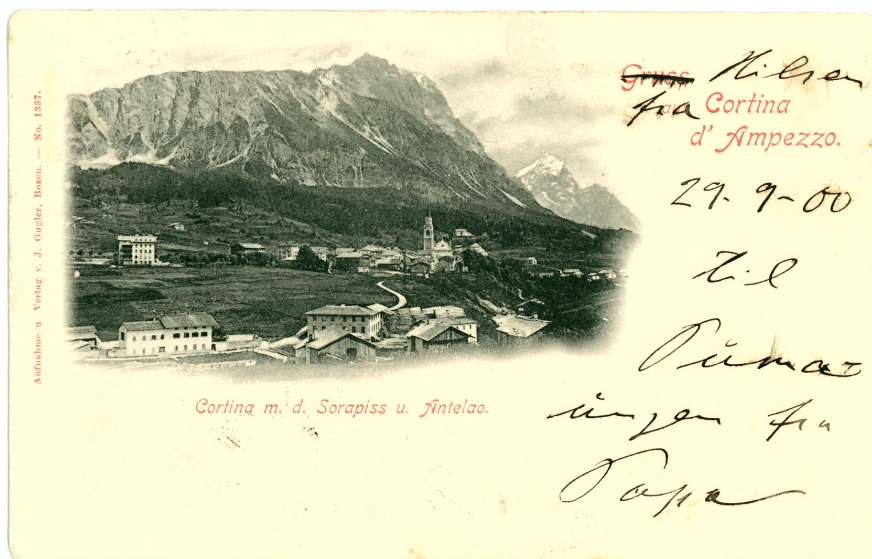 Aufnahme u Verlag v. J. Gugler, Bozen. — No. 1337.
Gruss Hilsen
fra Cortina
d' Ampezzo.
29. 9-00
til
Puma-
ungen fra
Papa
Cortina m. d. Sorapiss u. Antelao.